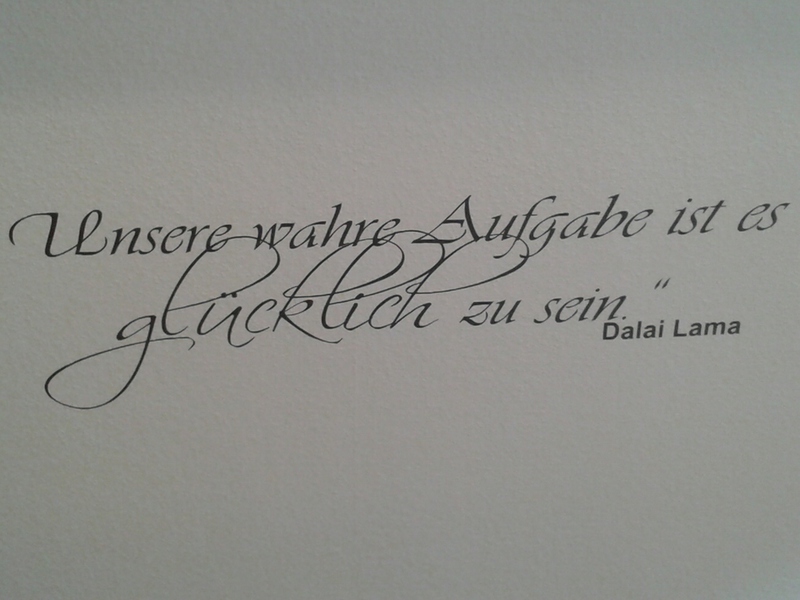 Unsere wahre Aufgabe ist es
glücklich zu sein."
Dalai Lama